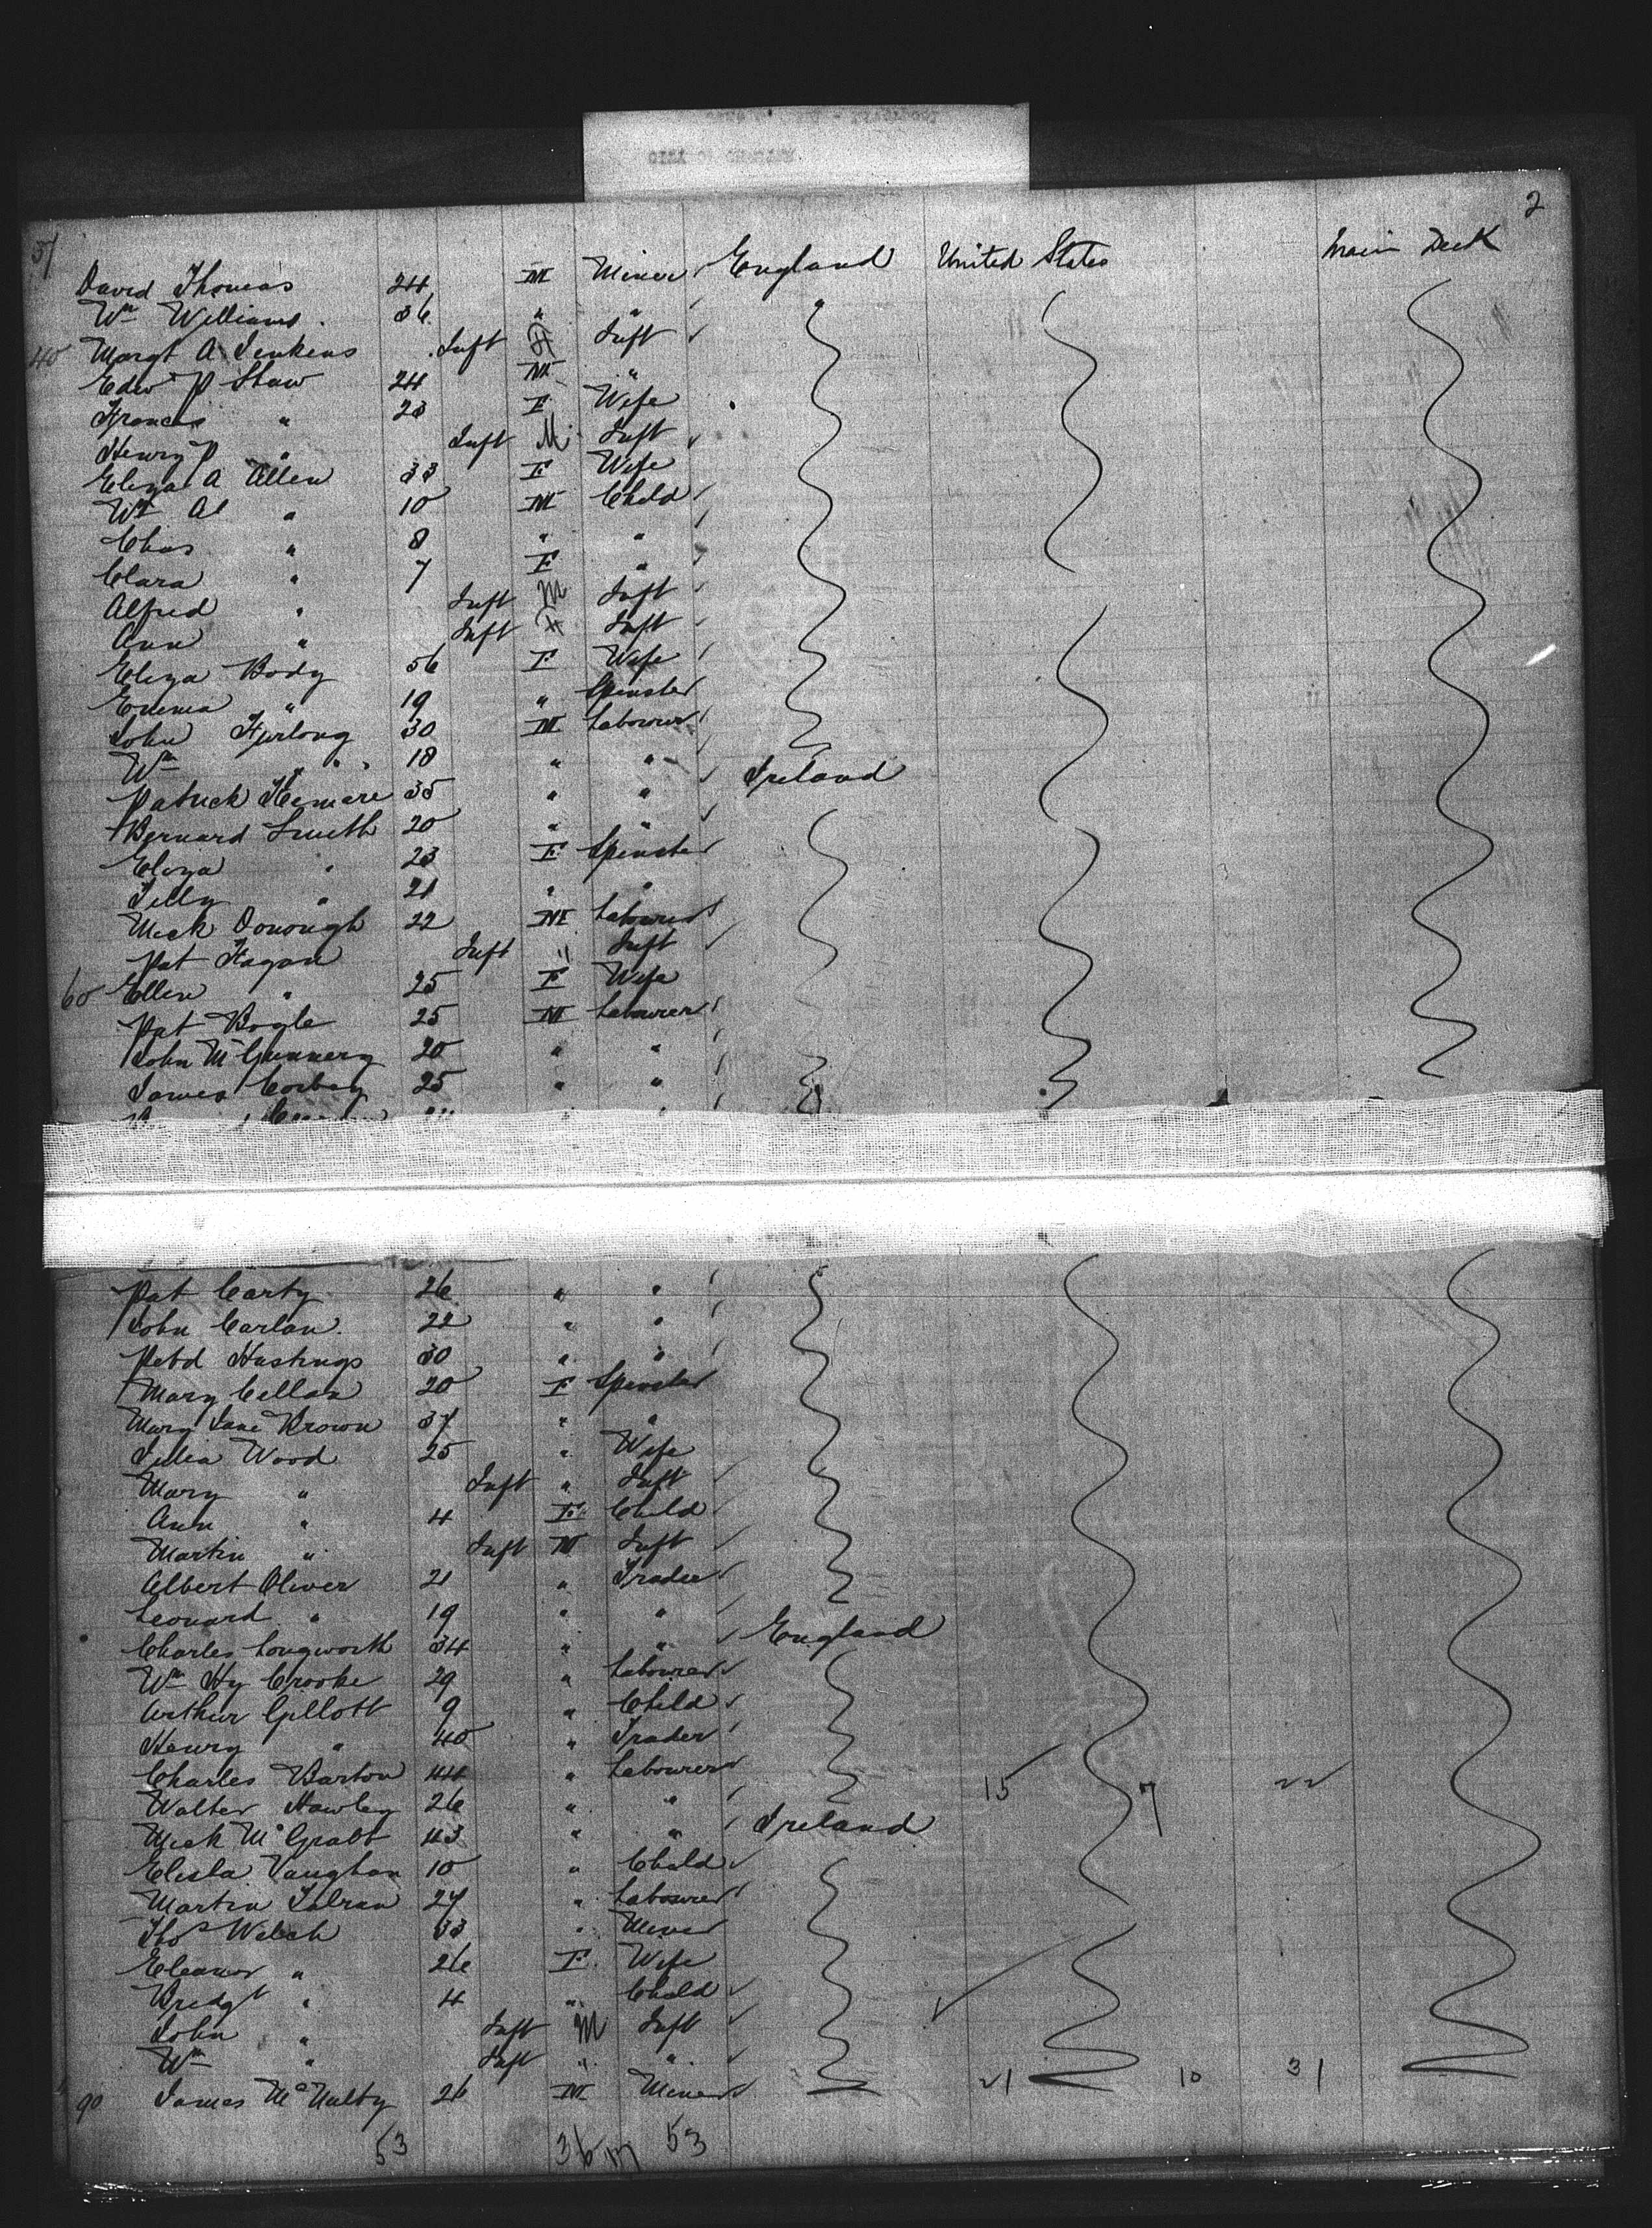 2
37
David Thomas 24 M Miner England United States Main Deck
Wm Williams 36 " "
40 Margt A Jenkins Inft F Inft
Edwd P Shaw 24 M "
Frances " 23 F Wife
Henry P " Inft M Inft
Eliza A Allen 33 F Wife
Wm Al " 10 M Child
Chas " 8 " "
Clara " 7 F "
Alfred " Inft M Inft
Ann " Inft F Inft
Eliza Body 56 F Wife
Emma " 19 " Spinster
John Furlong 30 M Labourer
Wm " 18 " "
Patrick 35 " " Ireland
Bernard Smith 20 " "
Eliza " 23 F Spinster
Tilly " 21 " "
Mick Donough 22 M Labourer
Pat Fagan Inft " Inft
60 Ellen " 25 F Wife
Pat Bogle 25 M Labourer
John 20 " "
James Corbey 25 " "
Pat Carty 26 " "
John Carlan 22 " "
Patd Hastings 30 " "
Mary Callan 20 F Spinster
Mary Jane Brown 37 " "
Julia Wood 25 " Wife
Mary " Inft " Inft
Ann " 4 F Child
Martin " Inft M Inft
Albert Oliver 21 " Trader
Leonard " 19 " "
Charles Longworth 34 " " England
Wm Hy Crooke 29 " Labourer
Arthur Gillott 9 " Child
Henry " 40 " Trader
Charles Barton 44 " Labourer
Walter Hawley 26 " " 15 7 22
Mick McGratt 43 " " Ireland
Elisha Vaughan 10 " Child
Martin 27 " Labourer
Thos Welsh 33 " Miner
Eleanor " 26 F Wife
Bridgt " 4 " Child
John " Inft M Inft
Wm " Inft " "
90 James McNulty 26 M Miner 21 10 31
53 36 17 53